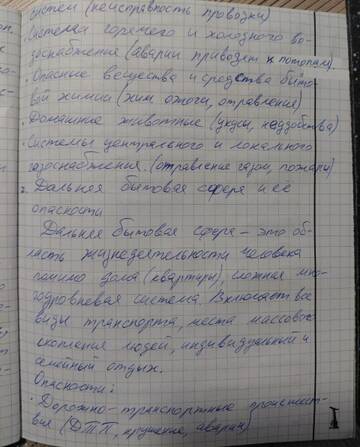 систем (неисправность проводки)
· Системы горячего и холодного во-
доснабжения (аварии приводят к потопам).
· Опасные вещества и средства быто-
вой химии (хим. ожоги, отравление)
· Домашние животные (укусы, неудобства)
· Системы центрального и локального
газоснабжения. (отравление газом, пожары)
2. Дальняя бытовая сфера и её
опасности
Дальняя бытовая сфера – это об-
ласть жизнедеятельности человека
помимо дома (квартиры), сложная мно-
гоуровневая система. Включает все
виды транспорта, места массовог
скопления людей, индивидуальный и
семейный отдых.
Опасности:
· Дорожно-транспортные происшест-
вия (ДТП, крушение, аварии)